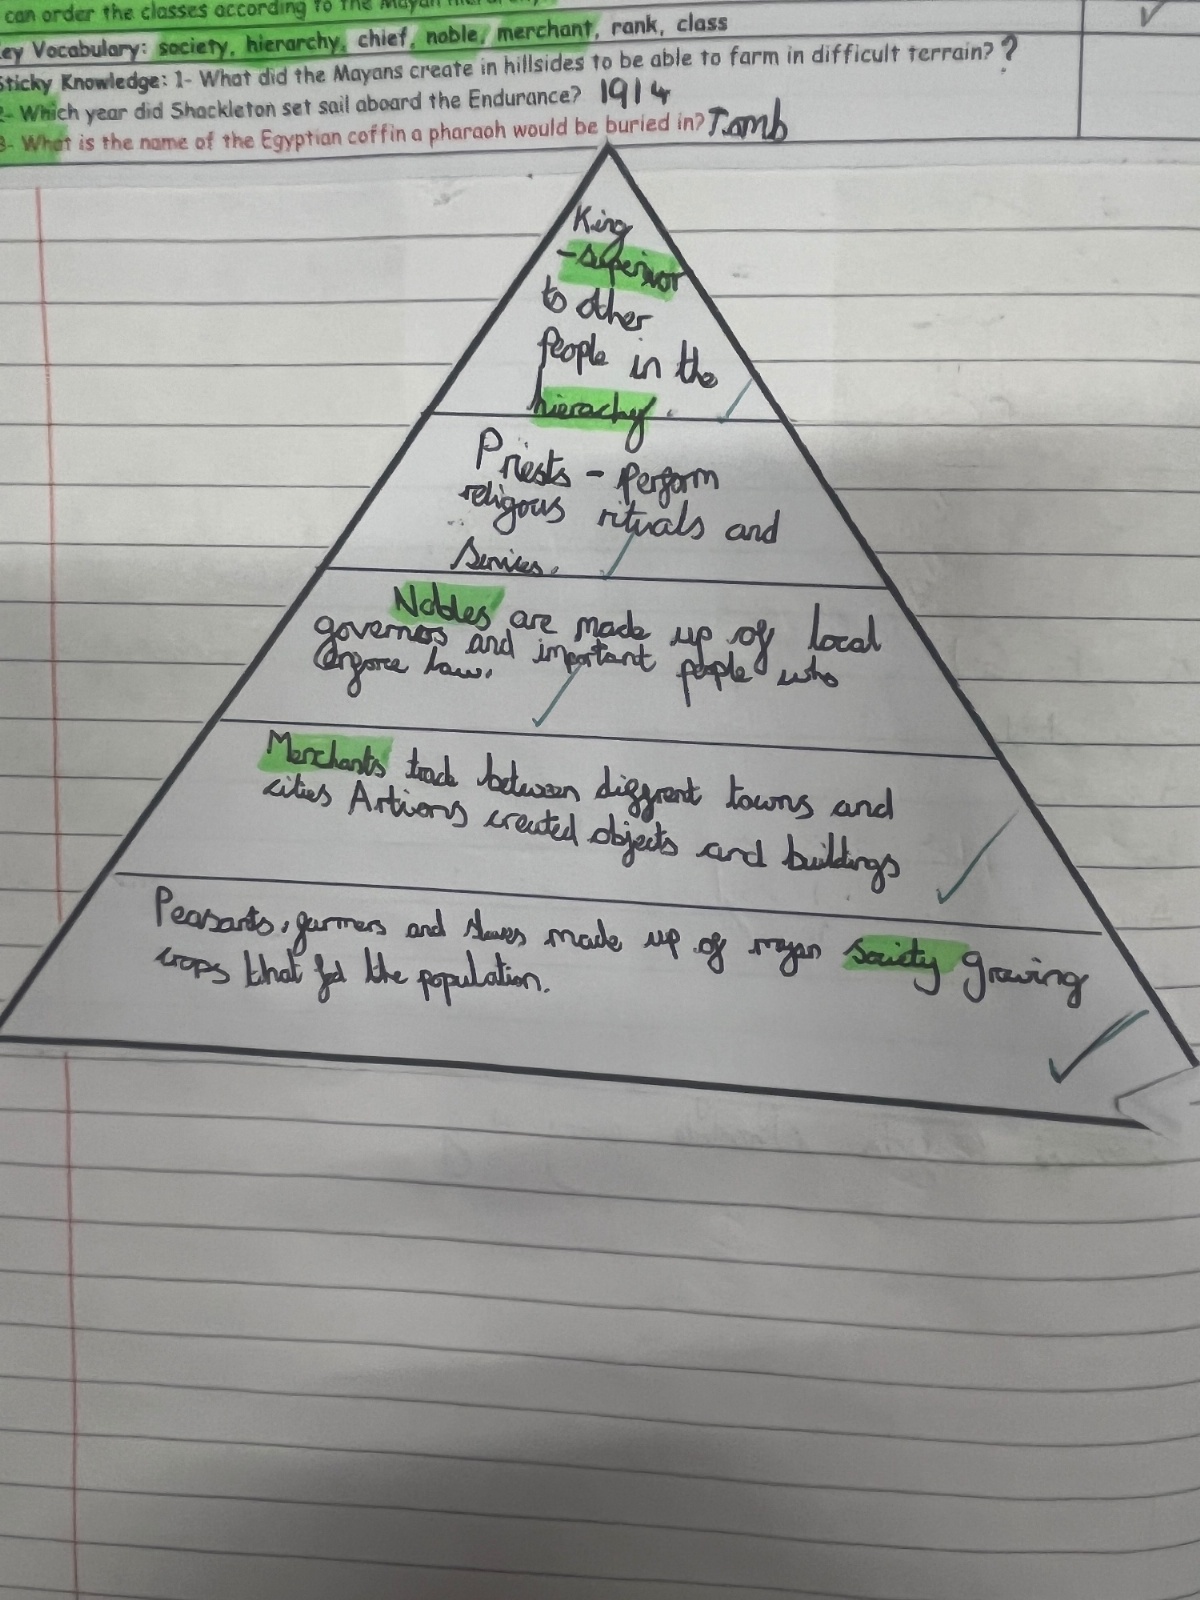 can order the classes according to the Mayan
ey Vocabulary: society, hierarchy, chief, noble, merchant, rank, class
Sticky Knowledge: 1- What did the Mayans create in hillsides to be able to farm in difficult terrain? ?
2- Which year did Shackleton set sail aboard the Endurance? 1914
3- What is the name of the Egyptian coffin a pharaoh would be buried in? Tomb
King
-superior
to other
people in the
hierachy.
Priests - perform
religous rituals and
Servises.
Nobles are made up of local
governers and important people who
enforce law.
Merchants trade between diffrent towns and
cities Artisons created objects and buildings
Peasants, farmers and slaves made up of mayan society Growing
crops that fed the population.